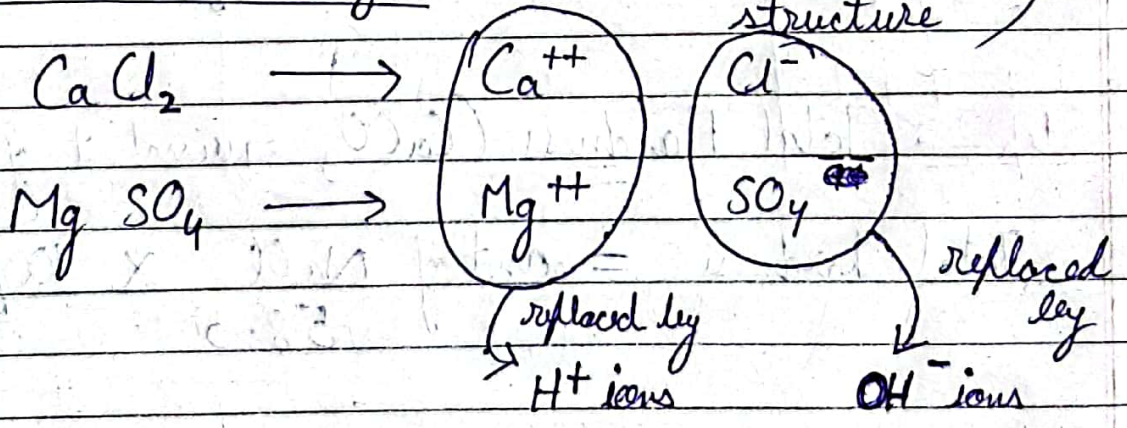 structure )
CaCl₂ ⟶ Ca⁺⁺ Cl⁻
MgSO₄ ⟶ Mg⁺⁺ SO₄⁻⁻
replaced by
H⁺ ions
replaced
by
OH⁻ ions